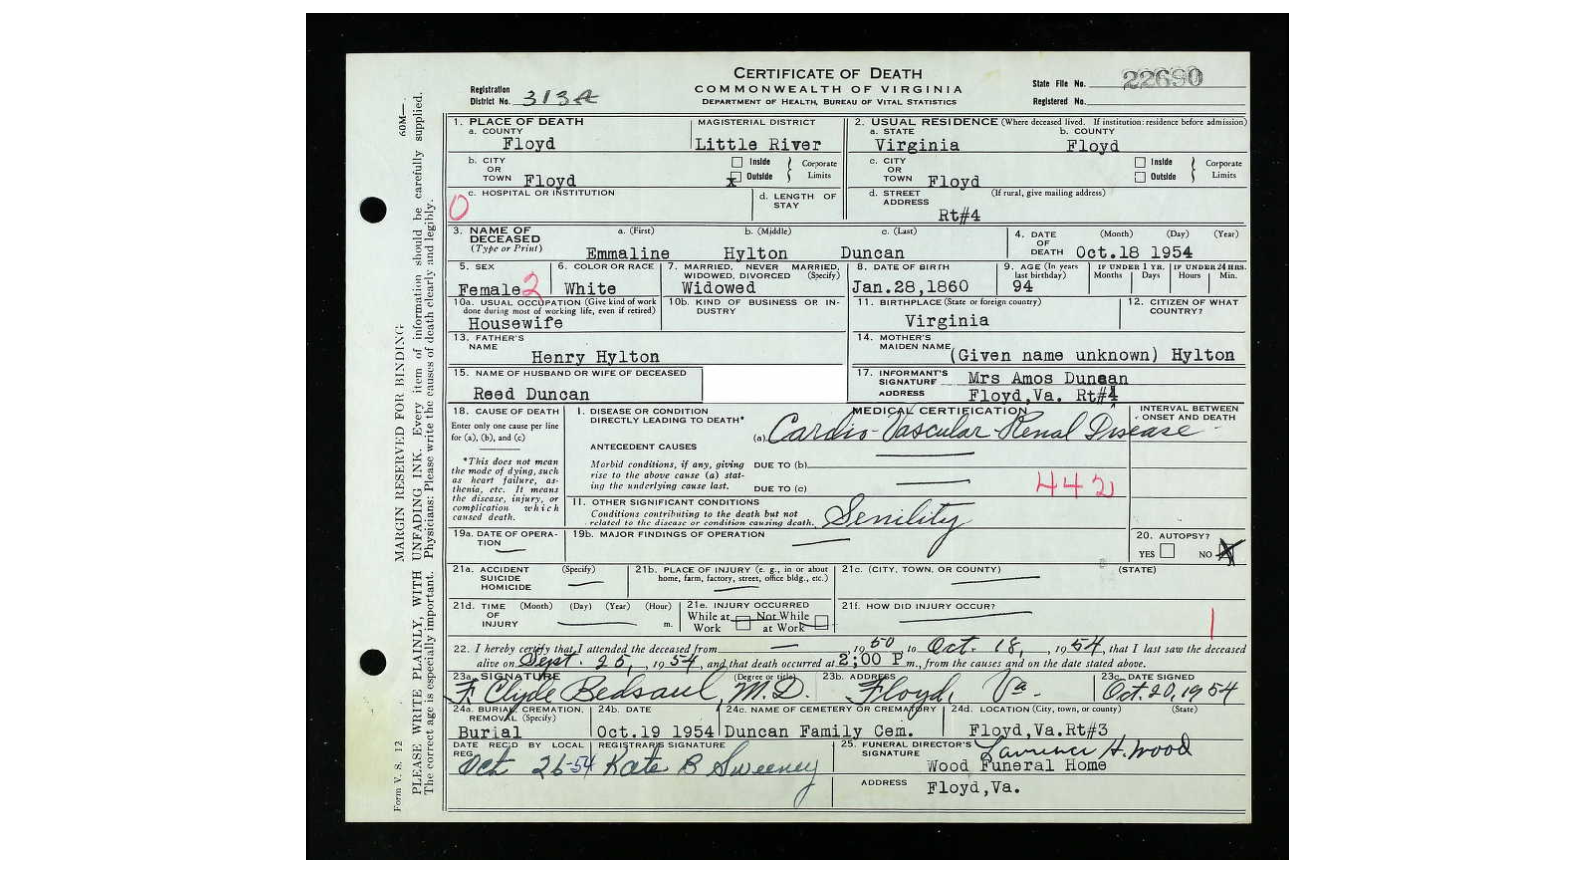 CERTIFICATE OF DEATH
COMMONWEALTH OF VIRGINIA
DEPARTMENT OF HEALTH, BUREAU OF VITAL STATISTICS
Registration District No. 313A
State File No. 22690
Registered No.
1. PLACE OF DEATH
a. COUNTY Floyd
MAGISTERIAL DISTRICT Little River
2. USUAL RESIDENCE (Where deceased lived. If institution: residence before admission)
a. STATE Virginia
b. COUNTY Floyd
b. CITY OR TOWN Floyd
Inside Outside Corporate Limits
c. CITY OR TOWN Floyd
Inside Outside Corporate Limits
c. HOSPITAL OR INSTITUTION
0
d. LENGTH OF STAY
d. STREET ADDRESS (If rural, give mailing address)
Rt#4
3. NAME OF DECEASED (Type or Print)
a. (First) b. (Middle) c. (Last)
Emmaline Hylton Duncan
4. DATE OF DEATH (Month) (Day) (Year)
Oct.18 1954
5. SEX Female 2
6. COLOR OR RACE White
7. MARRIED, NEVER MARRIED, WIDOWED, DIVORCED (Specify) Widowed
8. DATE OF BIRTH Jan.28,1860
9. AGE (In years last birthday) 94
IF UNDER 1 YR. Months Days
IF UNDER 24 HRS. Hours Min.
10a. USUAL OCCUPATION (Give kind of work done during most of working life, even if retired)
Housewife
10b. KIND OF BUSINESS OR INDUSTRY
11. BIRTHPLACE (State or foreign country) Virginia
12. CITIZEN OF WHAT COUNTRY?
13. FATHER'S NAME Henry Hylton
14. MOTHER'S MAIDEN NAME (Given name unknown) Hylton
15. NAME OF HUSBAND OR WIFE OF DECEASED
Reed Duncan
17. INFORMANT'S SIGNATURE Mrs Amos Duncan
ADDRESS Floyd,Va. Rt#4
18. CAUSE OF DEATH
Enter only one cause per line for (a), (b), and (c)
*This does not mean the mode of dying, such as heart failure, asthenia, etc. It means the disease, injury, or complication which caused death.
MEDICAL CERTIFICATION
INTERVAL BETWEEN ONSET AND DEATH
I. DISEASE OR CONDITION DIRECTLY LEADING TO DEATH*
(a) Cardio-Vascular-Renal Disease
ANTECEDENT CAUSES
Morbid conditions, if any, giving rise to the above cause (a) stating the underlying cause last.
DUE TO (b)
DUE TO (c)
442
II. OTHER SIGNIFICANT CONDITIONS
Conditions contributing to the death but not related to the disease or condition causing death.
Senility
19a. DATE OF OPERATION
19b. MAJOR FINDINGS OF OPERATION
20. AUTOPSY?
YES NO X
21a. ACCIDENT SUICIDE HOMICIDE (Specify)
21b. PLACE OF INJURY (e. g., in or about home, farm, factory, street, office bldg., etc.)
21c. (CITY, TOWN, OR COUNTY) (STATE)
21d. TIME OF INJURY (Month) (Day) (Year) (Hour) m.
21e. INJURY OCCURRED
While at Work Not While at Work
21f. HOW DID INJURY OCCUR?
1
22. I hereby certify that I attended the deceased from —, 1950, to Oct. 18, 1954, that I last saw the deceased
alive on Sept. 25, 1954, and that death occurred at 2;00 P m., from the causes and on the date stated above.
23a. SIGNATURE (Degree or title)
F. Clyde Bedsaul, M.D.
23b. ADDRESS Floyd, Va.
23c. DATE SIGNED Oct.20,1954
24a. BURIAL, CREMATION, REMOVAL (Specify) Burial
24b. DATE Oct.19 1954
24c. NAME OF CEMETERY OR CREMATORY Duncan Family Cem.
24d. LOCATION (City, town, or county) (State)
Floyd,Va.Rt#3
DATE REC'D BY LOCAL REG. Oct 26-54
REGISTRAR'S SIGNATURE Kate B Sweeney
25. FUNERAL DIRECTOR'S SIGNATURE Lawrence H. Wood
Wood Funeral Home
ADDRESS Floyd,Va.
Form V. S. 12
60M—
MARGIN RESERVED FOR BINDING
PLEASE WRITE PLAINLY, WITH UNFADING INK. Every item of information should be carefully supplied.
The correct age is especially important. Physicians: Please write the causes of death clearly and legibly.